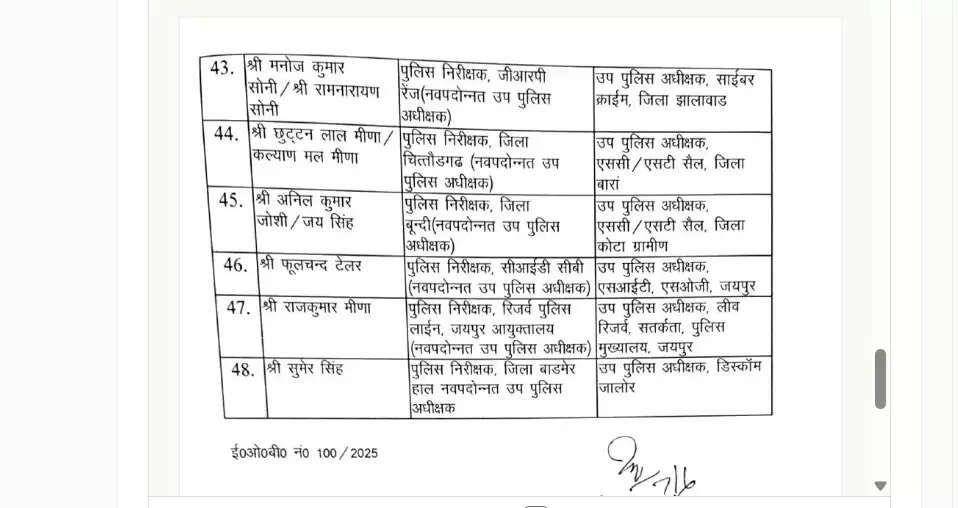 43. श्री मनोज कुमार
सोनी/श्री रामनारायण
सोनी
पुलिस निरीक्षक, जीआरपी
रेंज(नवपदोन्नत उप पुलिस
अधीक्षक)
उप पुलिस अधीक्षक, साईबर
क्राईम, जिला झालावाड
44. श्री छुट्टन लाल मीणा/
कल्याण मल मीणा
पुलिस निरीक्षक, जिला
चित्तौडगढ (नवपदोन्नत उप
पुलिस अधीक्षक)
उप पुलिस अधीक्षक,
एससी/एसटी सैल, जिला
बारां
45. श्री अनिल कुमार
जोशी/जय सिंह
पुलिस निरीक्षक, जिला
बून्दी(नवपदोन्नत उप पुलिस
अधीक्षक)
उप पुलिस अधीक्षक,
एससी/एसटी सैल, जिला
कोटा ग्रामीण
46. श्री फूलचन्द टेलर
पुलिस निरीक्षक, सीआईडी सीबी
(नवपदोन्नत उप पुलिस अधीक्षक)
उप पुलिस अधीक्षक,
एसआईटी, एसओजी, जयपुर
47. श्री राजकुमार मीणा
पुलिस निरीक्षक, रिजर्व पुलिस
लाईन, जयपुर आयुक्तालय
(नवपदोन्नत उप पुलिस अधीक्षक)
उप पुलिस अधीक्षक, लीव
रिजर्व, सतर्कता, पुलिस
मुख्यालय, जयपुर
48. श्री सुमेर सिंह
पुलिस निरीक्षक, जिला बाडमेर
हाल नवपदोन्नत उप पुलिस
अधीक्षक
उप पुलिस अधीक्षक, डिस्कॉम
जालोर
ई०ओ०बी० नं० 100/2025